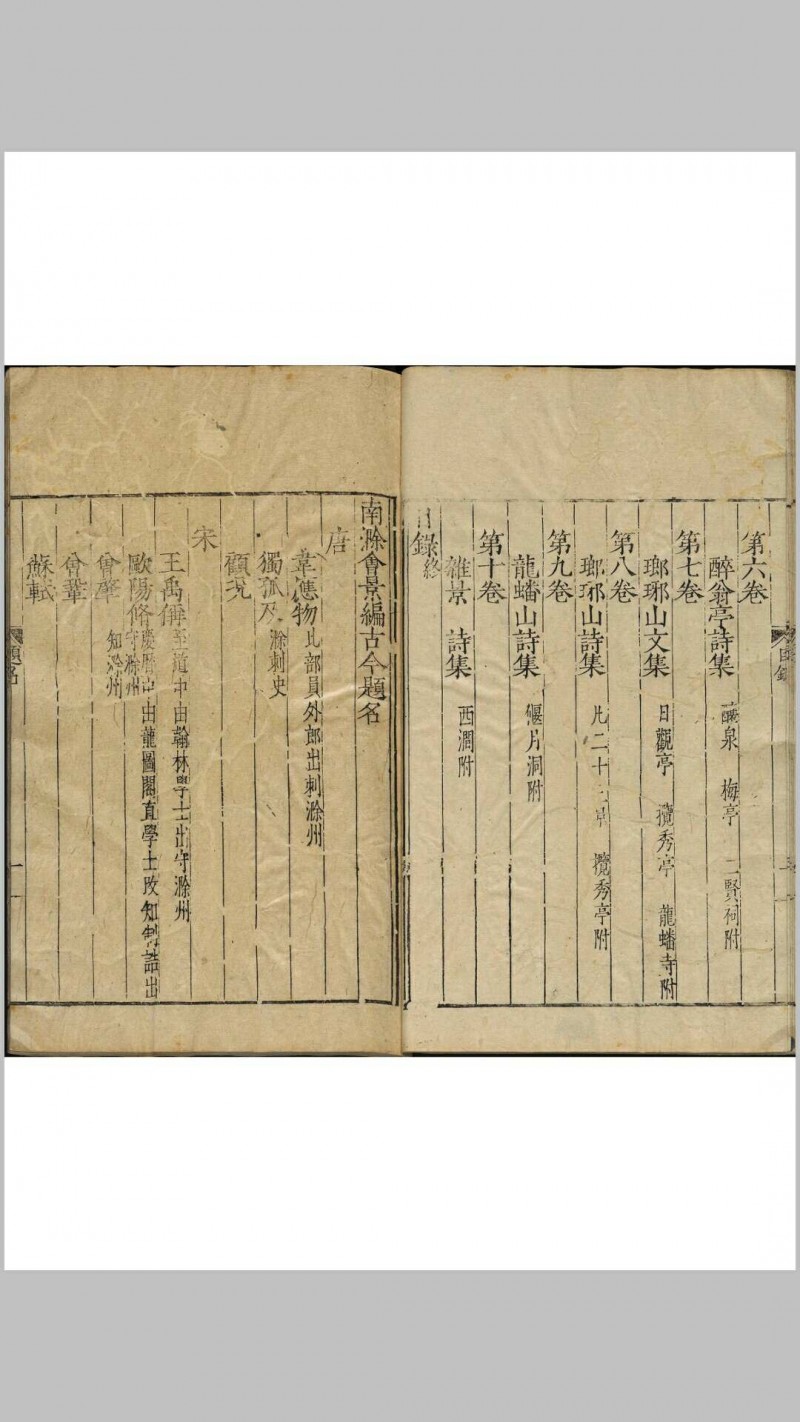 第六卷
醉翁亭詩集 釀泉 梅亭 二賢祠附
第七卷
瑯琊山文集 日觀亭 攬秀亭 龍蟠寺附
第八卷
瑯琊山詩集 攬秀亭附
第九卷
龍蟠山詩集 偃月洞附
第十卷
雜景詩集 西澗附
目錄終
南滁會景編古今題名
唐
韋應物 比部員外郎出刺滁州
獨孤及 滁刺史
顧况
宋
王禹偁 至道中由翰林學士出守滁州
歐陽脩 慶曆中由龍圖閣直學士改知制誥出
守滁州
曾肇 知滁州
曾鞏
蘇軾
題名
一